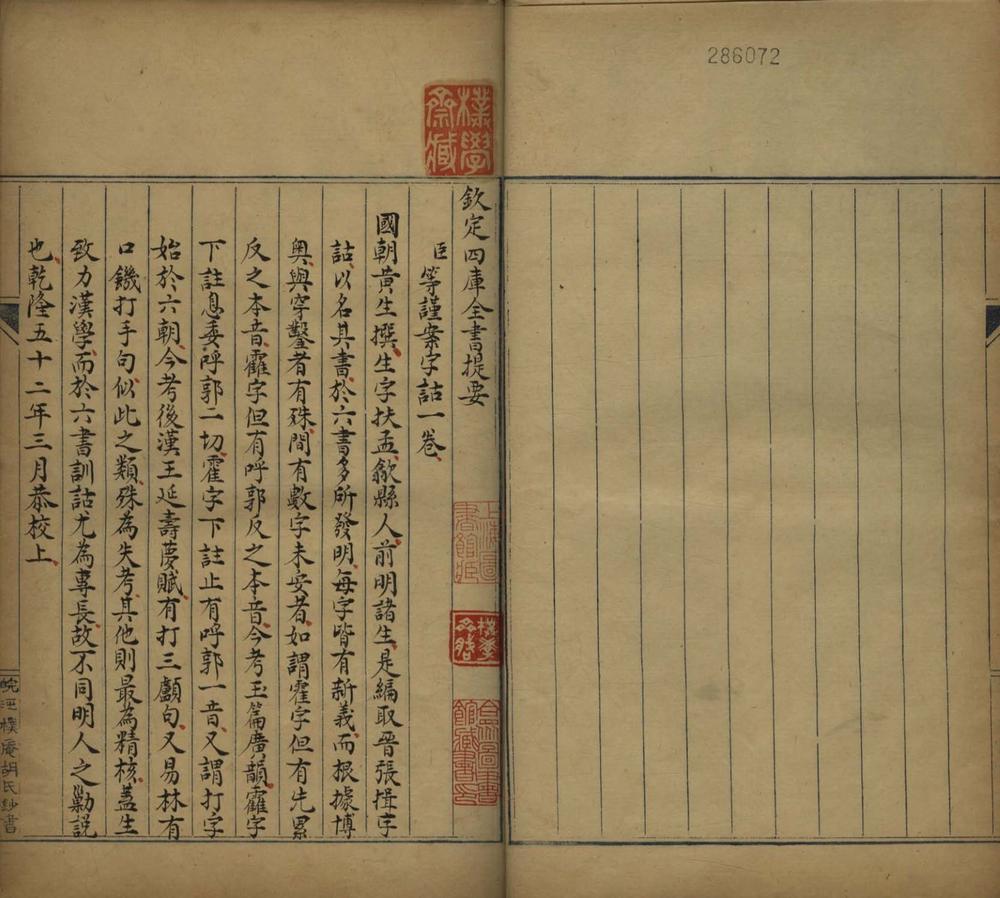 286072
樸學齋臧
欽定四庫全書提要
臣等謹案字詁一卷
國朝黃生撰生字扶孟歙縣人前明諸生是編取晉張揖字
詁以名其書於六書多所發明每字皆有新義而根據博
奥與穿鑿者有殊間有數字未安者如謂霍字但有先累
反之本音靃字但有呼郭反之本音今考玉篇廣韻靃字
下註息委呼郭二切霍字下註止有呼郭一音又謂打字
始於六朝今考後漢王延壽夢賦有打三顱句又易林有
口饑打手句似此之類殊為失考其他則最為精核蓋生
致力漢學而於六書訓詁尤為專長故不同明人之勦說
也乾隆五十二年三月恭校上
上海圖書館臧
合眾圖書館藏書印
樸菴胡氏鈔書